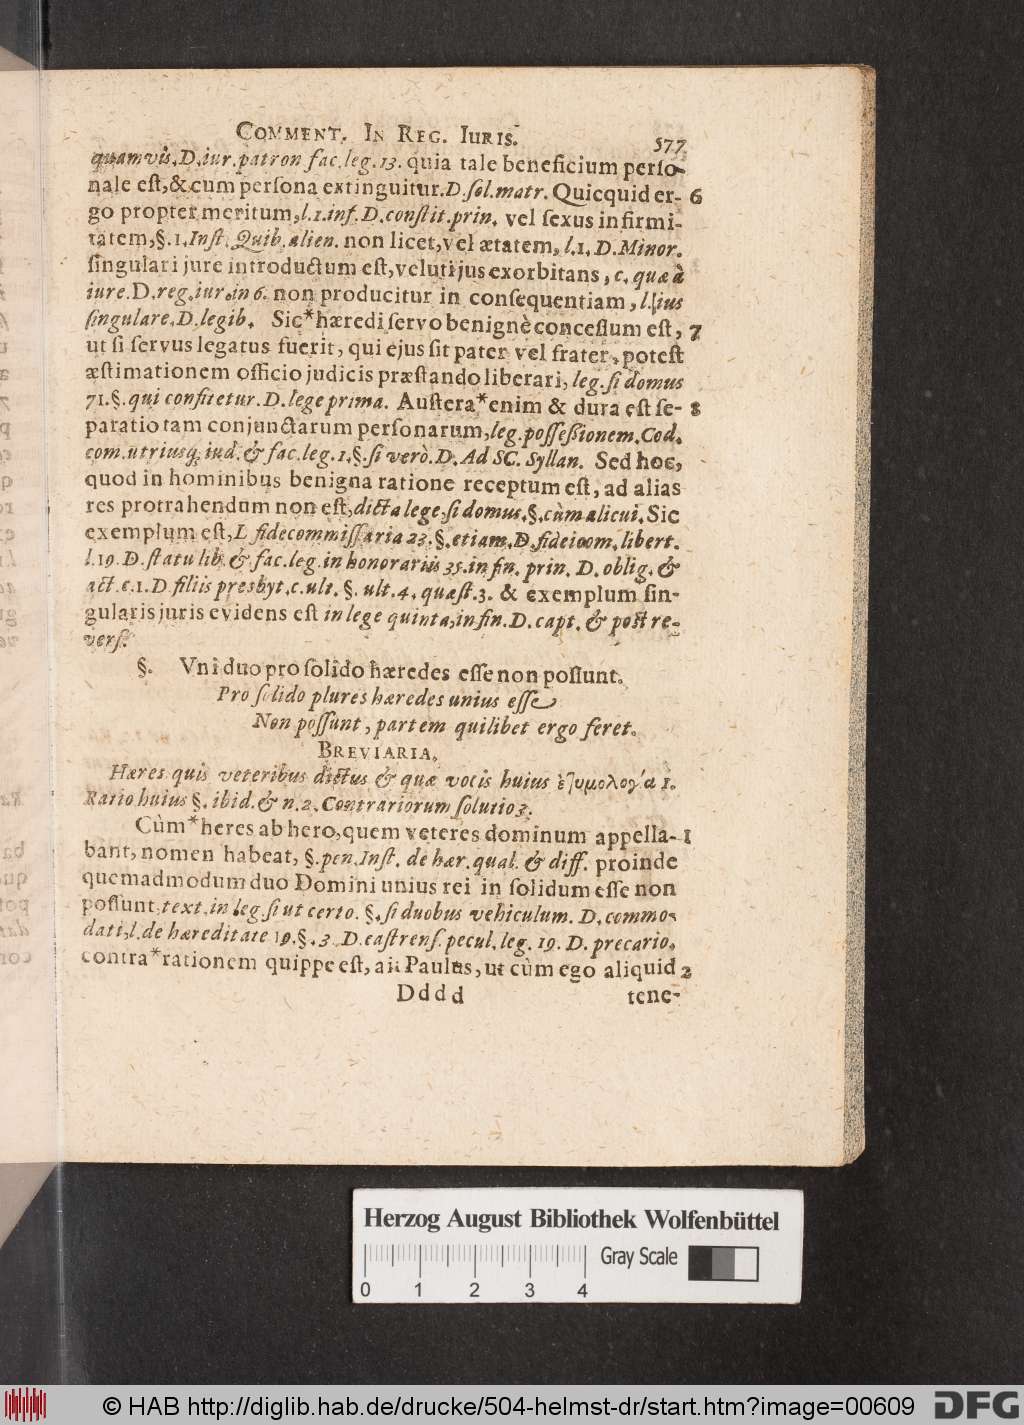 COMMENT. IN REG. IURIS. 577
quamvis. D. iur. patron fac. leg. 13. quia tale beneficium perſo-
nale eſt, & cum perſona extinguitur. D. ſol. matr. Quicquid er- 6
go propter meritum, l. 1. inf. D. conſtit. prin. vel ſexus infirmi-
tatem, §. 1. Inſt. Quib. alien. non licet, vel ætatem, l. 1. D. Minor.
ſingulari jure introductum eſt, veluti jus exorbitans, c. quæ à
iure. D. reg. iur. in 6. non producitur in conſequentiam, l. jus
ſingulare. D. legib. Sic * hæredi ſervo benignè conceſſum eſt, 7
ut ſi ſervus legatus fuerit, qui ejus ſit pater vel frater, poteſt
æſtimationem officio judicis præſtando liberari, leg. ſi domus
71. §. qui confitetur. D. lege prima. Auſtera * enim & dura eſt ſe- 8
paratio tam conjunctarum perſonarum, leg. poſſeſſionem. Cod.
com. utriusq; iud. & fac. leg. 1. §. ſi verò. D. Ad SC. Syllan. Sed hoc,
quod in hominibus benigna ratione receptum eſt, ad alias
res protrahendum non eſt, dicta lege, ſi domus. §. cùm alicui. Sic
exemplum eſt, L fidecommiſſaria 23. §. etiam. D. fideicom. libert.
l. 19. D. ſtatu lib. & fac. leg. in honorariis 35. in fin. prin. D. oblig. &
act. c. 1. D filiis presbyt. c. ult. §. ult. 4. quæſt. 3. & exemplum ſin-
gularis juris evidens eſt in lege quinta, in fin. D. capt. & poſt re-
verſ.
§. Vni duo pro ſolido hæredes eſſe non poſſunt.
Pro ſolido plures hæredes unius eſſe
Non poſſunt, partem quilibet ergo feret.
BREVIARIA.
Hæres quis veteribus dictus & quæ vocis huius ἐτυμολογία 1.
Ratio huius §. ibid. & n. 2. Contrariorum ſolutio 3.
Cùm * heres ab hero, quem veteres dominum appella- 1
bant, nomen habeat, §. pen. Inſt. de hær. qual. & diff. proinde
quemadmodum duo Domini unius rei in ſolidum eſſe non
poſſunt, text. in leg. ſi ut certo. §. ſi duobus vehiculum. D. commo-
dati, l. de hæreditate 19. §. 3. D. caſtrenſ. pecul. leg. 19. D. precario.
contra * rationem quippe eſt, ait Paulus, ut cùm ego aliquid 2
Dddd tene-
Herzog August Bibliothek Wolfenbüttel
Gray Scale
0 1 2 3 4
© HAB http://diglib.hab.de/drucke/504-helmst-dr/start.htm?image=00609 DFG